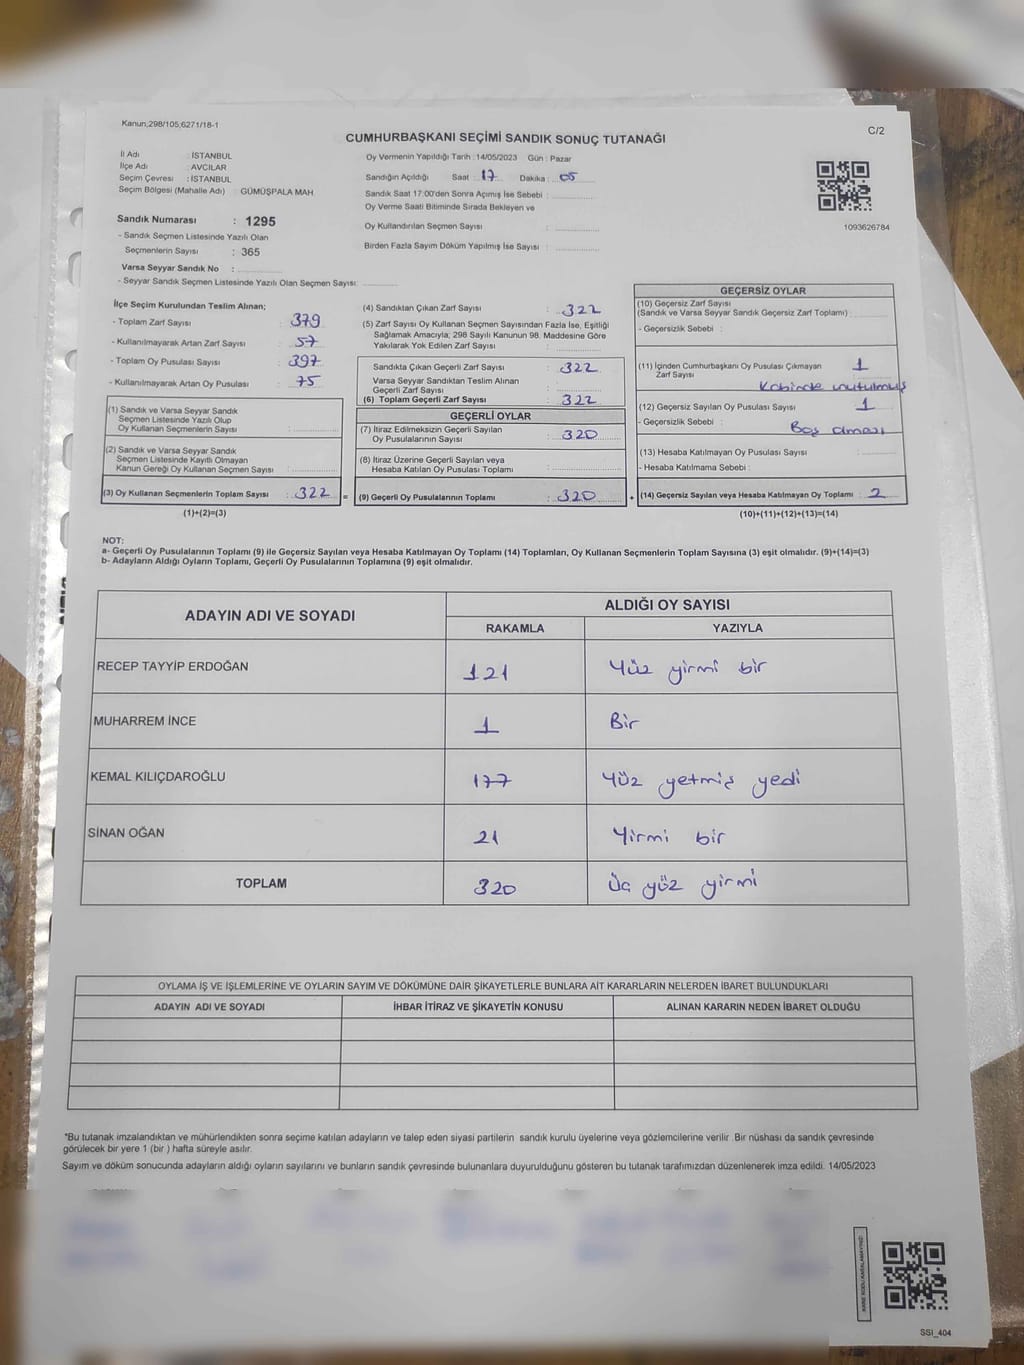 Kanun;298/105;6271/18-1
C/2
CUMHURBAŞKANI SEÇİMİ SANDIK SONUÇ TUTANAĞI
İl Adı : İSTANBUL
İlçe Adı : AVCILAR
Seçim Çevresi : İSTANBUL
Seçim Bölgesi (Mahalle Adı) : GÜMÜŞPALA MAH
Sandık Numarası : 1295
- Sandık Seçmen Listesinde Yazılı Olan
Seçmenlerin Sayısı : 365
Varsa Seyyar Sandık No :
- Seyyar Sandık Seçmen Listesinde Yazılı Olan Seçmen Sayısı:
Oy Vermenin Yapıldığı Tarih : 14/05/2023 Gün : Pazar
Sandığın Açıldığı Saat : 17 Dakika : 05
Sandık Saat 17:00'den Sonra Açımış İse Sebebi :
Oy Verme Saati Bitiminde Sırada Bekleyen ve
Oy Kullandırılan Seçmen Sayısı :
Birden Fazla Sayım Döküm Yapılmış İse Sayısı :
1093626784
İlçe Seçim Kurulundan Teslim Alınan;
- Toplam Zarf Sayısı : 379
- Kullanılmayarak Artan Zarf Sayısı : 57
- Toplam Oy Pusulası Sayısı : 397
- Kullanılmayarak Artan Oy Pusulası : 75
(1) Sandık ve Varsa Seyyar Sandık
Seçmen Listesinde Yazılı Olup
Oy Kullanan Seçmenlerin Sayısı :
(2) Sandık ve Varsa Seyyar Sandık
Seçmen Listesinde Kayıtlı Olmayan
Kanun Gereği Oy Kullanan Seçmen Sayısı :
(3) Oy Kullanan Seçmenlerin Toplam Sayısı : 322 =
(1)+(2)=(3)
(4) Sandıktan Çıkan Zarf Sayısı : 322
(5) Zarf Sayısı Oy Kullanan Seçmen Sayısından Fazla İse, Eşitliği
Sağlamak Amacıyla; 298 Sayılı Kanunun 98. Maddesine Göre
Yakılarak Yok Edilen Zarf Sayısı :
Sandıkta Çıkan Geçerli Zarf Sayısı : 322
Varsa Seyyar Sandıktan Teslim Alınan
Geçerli Zarf Sayısı :
(6) Toplam Geçerli Zarf Sayısı : 322
GEÇERLİ OYLAR
(7) İtiraz Edilmeksizin Geçerli Sayılan
Oy Pusulalarının Sayısı : 320
(8) İtiraz Üzerine Geçerli Sayılan veya
Hesaba Katılan Oy Pusulası Toplamı :
(9) Geçerli Oy Pusulalarının Toplamı : 320 +
GEÇERSİZ OYLAR
(10) Geçersiz Zarf Sayısı
(Sandık ve Varsa Seyyar Sandık Geçersiz Zarf Toplamı) :
- Geçersizlik Sebebi :
(11) İçinden Cumhurbaşkanı Oy Pusulası Çıkmayan
Zarf Sayısı : 1
Kabinde unutulmuş
(12) Geçersiz Sayılan Oy Pusulası Sayısı : 1
- Geçersizlik Sebebi : Boş olması
(13) Hesaba Katılmayan Oy Pusulası Sayısı :
- Hesaba Katılmama Sebebi :
(14) Geçersiz Sayılan veya Hesaba Katılmayan Oy Toplamı : 2
(10)+(11)+(12)+(13)=(14)
NOT:
a- Geçerli Oy Pusulalarının Toplamı (9) ile Geçersiz Sayılan veya Hesaba Katılmayan Oy Toplamı (14) Toplamları, Oy Kullanan Seçmenlerin Toplam Sayısına (3) eşit olmalıdır. (9)+(14)=(3)
b- Adayların Aldığı Oyların Toplamı, Geçerli Oy Pusulalarının Toplamına (9) eşit olmalıdır.
ADAYIN ADI VE SOYADI ALDIĞI OY SAYISI
RAKAMLA YAZIYLA
RECEP TAYYİP ERDOĞAN 121 Yüz yirmi bir
MUHARREM İNCE 1 Bir
KEMAL KILIÇDAROĞLU 177 Yüz yetmiş yedi
SİNAN OĞAN 21 Yirmi bir
TOPLAM 320 Üç yüz yirmi
OYLAMA İŞ VE İŞLEMLERİNE VE OYLARIN SAYIM VE DÖKÜMÜNE DAİR ŞİKAYETLERLE BUNLARA AİT KARARLARIN NELERDEN İBARET BULUNDUKLARI
ADAYIN ADI VE SOYADI İHBAR İTİRAZ VE ŞİKAYETİN KONUSU ALINAN KARARIN NEDEN İBARET OLDUĞU
*Bu tutanak imzalandıktan ve mühürlendikten sonra seçime katılan adayların ve talep eden siyasi partilerin sandık kurulu üyelerine veya gözlemcilerine verilir .Bir nüshası da sandık çevresinde
görülecek bir yere 1 (bir ) hafta süreyle asılır.
Sayım ve döküm sonucunda adayların aldığı oyların sayılarını ve bunların sandık çevresinde bulunanlara duyurulduğunu gösteren bu tutanak tarafımızdan düzenlenerek imza edildi. 14/05/2023
SSI_404